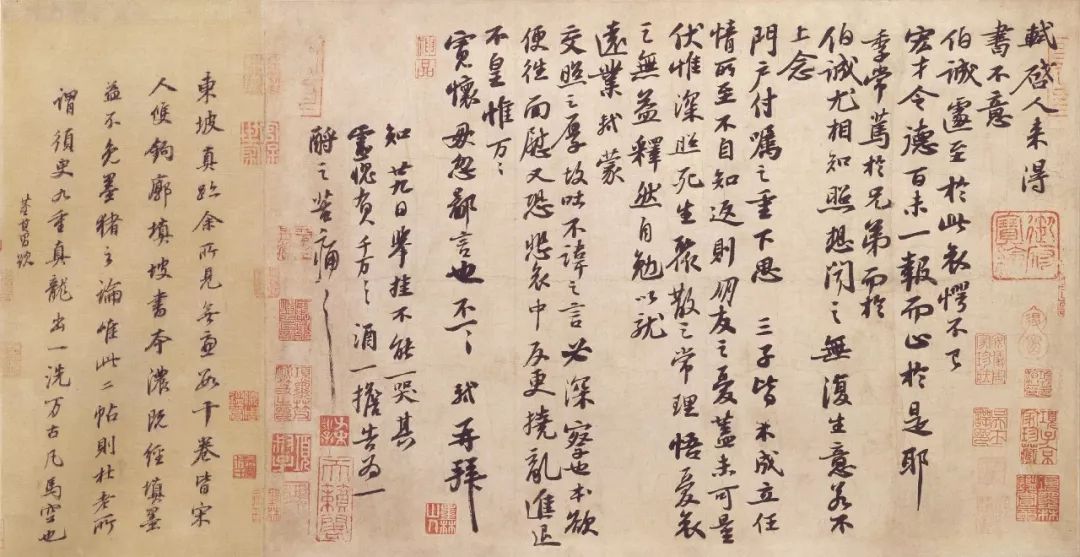 軾啓人来得
書不意
伯誠遽至於此哀愕不已
宏才令德百未一報而止於是耶
季常篤於兄弟而於
伯誠尤相知照想聞之無復生意若不
上念
門户付嘱之重下思 三子皆未成立任
情所至不自知返則朋友之憂盖未可量
伏惟深照死生聚散之常理悟憂哀
之無益釋然自勉以就
遠業軾蒙
交照之厚故吐不諱之言必深察也本欲
便往面慰又恐悲哀中反更撓亂進退
不皇惟万〻
寬懷毋忽鄙言也不一〻 軾再拜
知廿九日舉挂不能一哭其
靈愧負千万〻酒一擔告為一
酹之苦痛〻
東坡真跡余所見無慮數十卷皆宋
人雙鉤廓填坡書本濃既經填墨
益不免墨豬之論惟此二帖則杜老所
謂須臾九重真龍出一洗万古凡馬空也
董其昌題